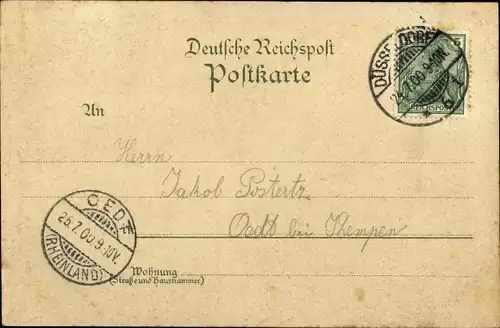 Deutsche Reichspost
Postkarte
DÜSSELDORF
24.7.00.9-10N.
REICHSPOST
An
Herrn
Jakob Postertz
Oedt bei Kempen
OEDT
25.7.00.9-10V.
(RHEINLAND)
Wohnung
(Straße und Hausnummer)